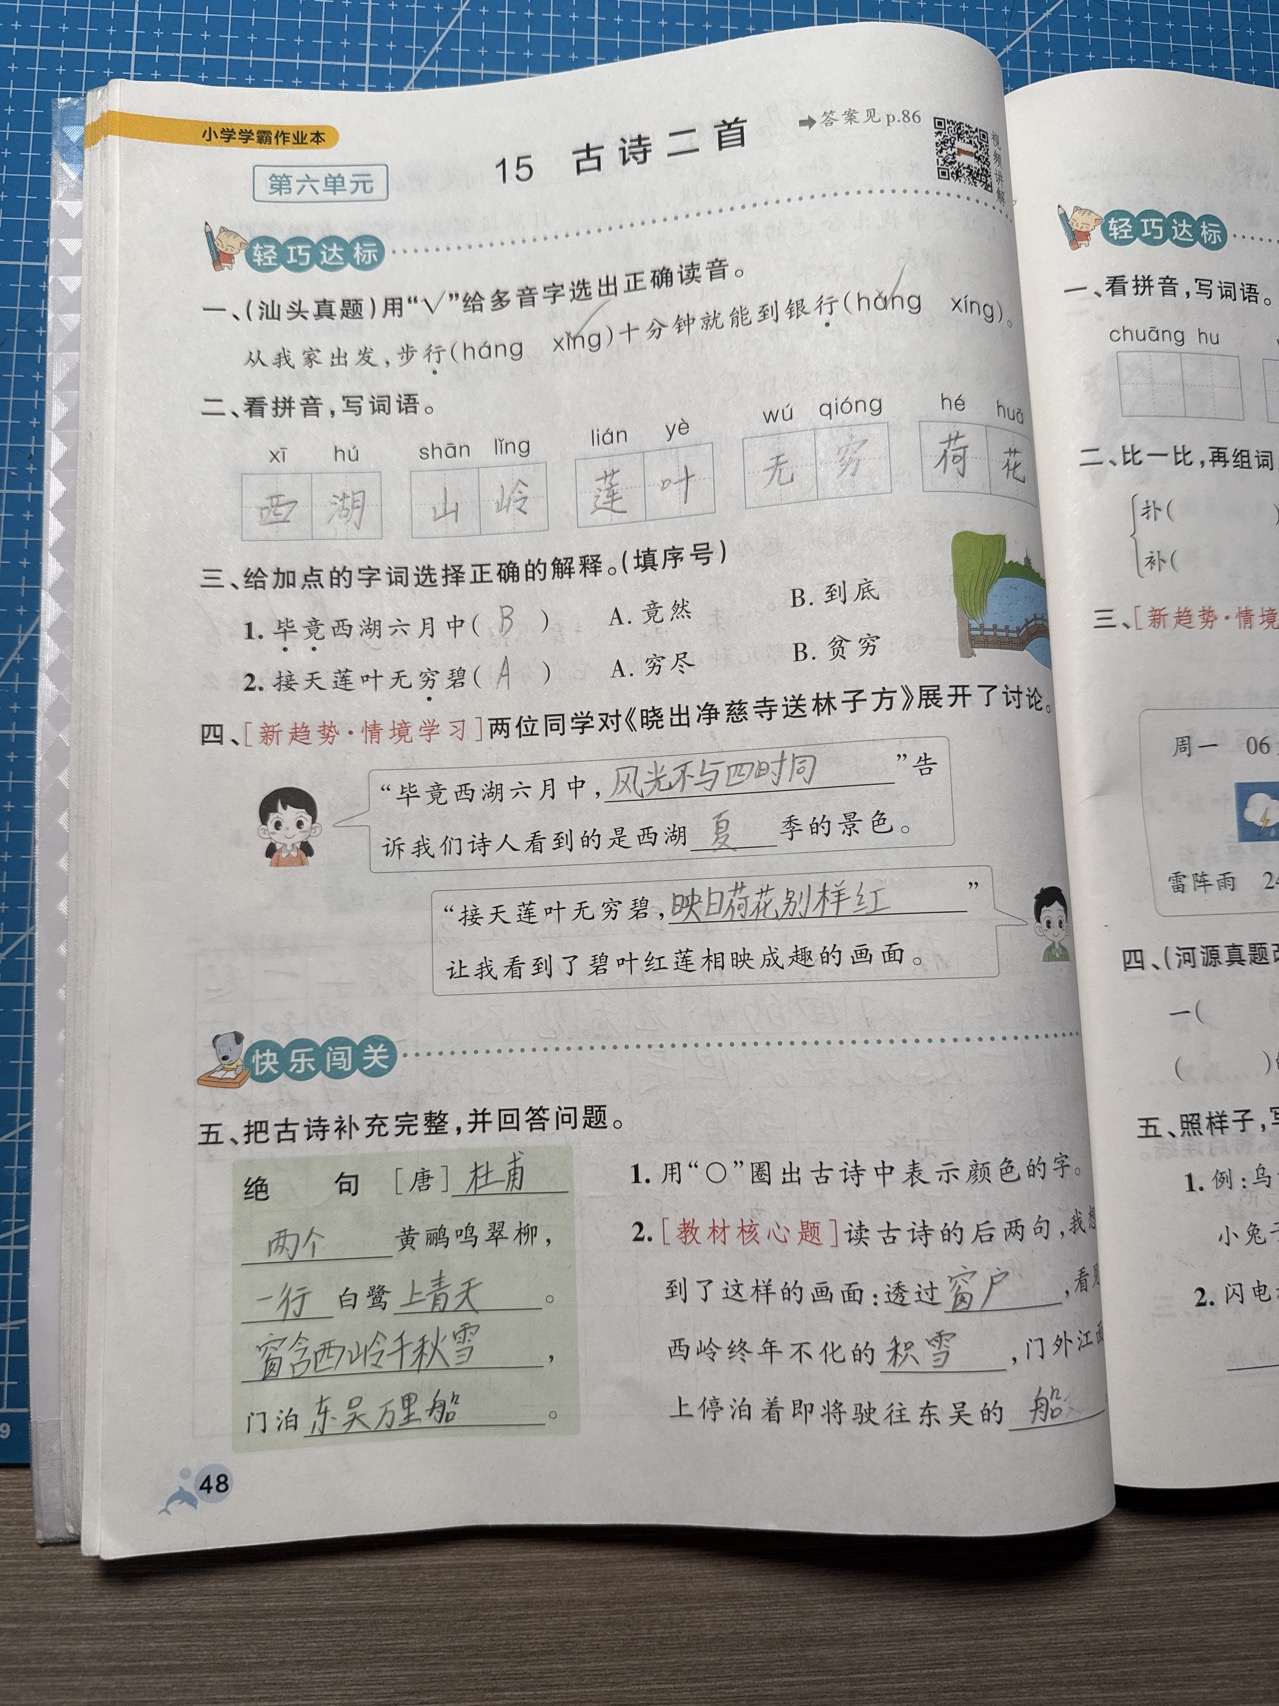 小学学霸作业本
15 古诗二首
➡答案见p.86
视频讲解
第六单元
轻巧达标
一、(汕头真题)用“√”给多音字选出正确读音。
从我家出发,步行(háng xíng)十分钟就能到银行(háng xíng)。
二、看拼音,写词语。
xī hú shān lǐng lián yè wú qióng hé huā
西湖 山岭 莲叶 无穷 荷花
三、给加点的字词选择正确的解释。(填序号)
1. 毕竟西湖六月中( B ) A. 竟然 B. 到底
2. 接天莲叶无穷碧( A ) A. 穷尽 B. 贫穷
四、[新趋势·情境学习]两位同学对《晓出净慈寺送林子方》展开了讨论。
“毕竟西湖六月中,风光不与四时同”告
诉我们诗人看到的是西湖夏季的景色。
“接天莲叶无穷碧,映日荷花别样红”
让我看到了碧叶红莲相映成趣的画面。
快乐闯关
五、把古诗补充完整,并回答问题。
绝句 [唐]杜甫
两个黄鹂鸣翠柳,
一行白鹭上青天。
窗含西岭千秋雪,
门泊东吴万里船。
1. 用“○”圈出古诗中表示颜色的字。
2. [教材核心题]读古诗的后两句,我想
到了这样的画面:透过窗户,看见
西岭终年不化的积雪,门外江面
上停泊着即将驶往东吴的船
48
轻巧达标
一、看拼音,写词语。
chuāng hu
二、比一比,再组词
扑(
补(
三、[新趋势·情境
周一 06
雷阵雨 24
四、(河源真题改
一(
( )的
五、照样子,写
1. 例:乌
小兔子
2. 闪电